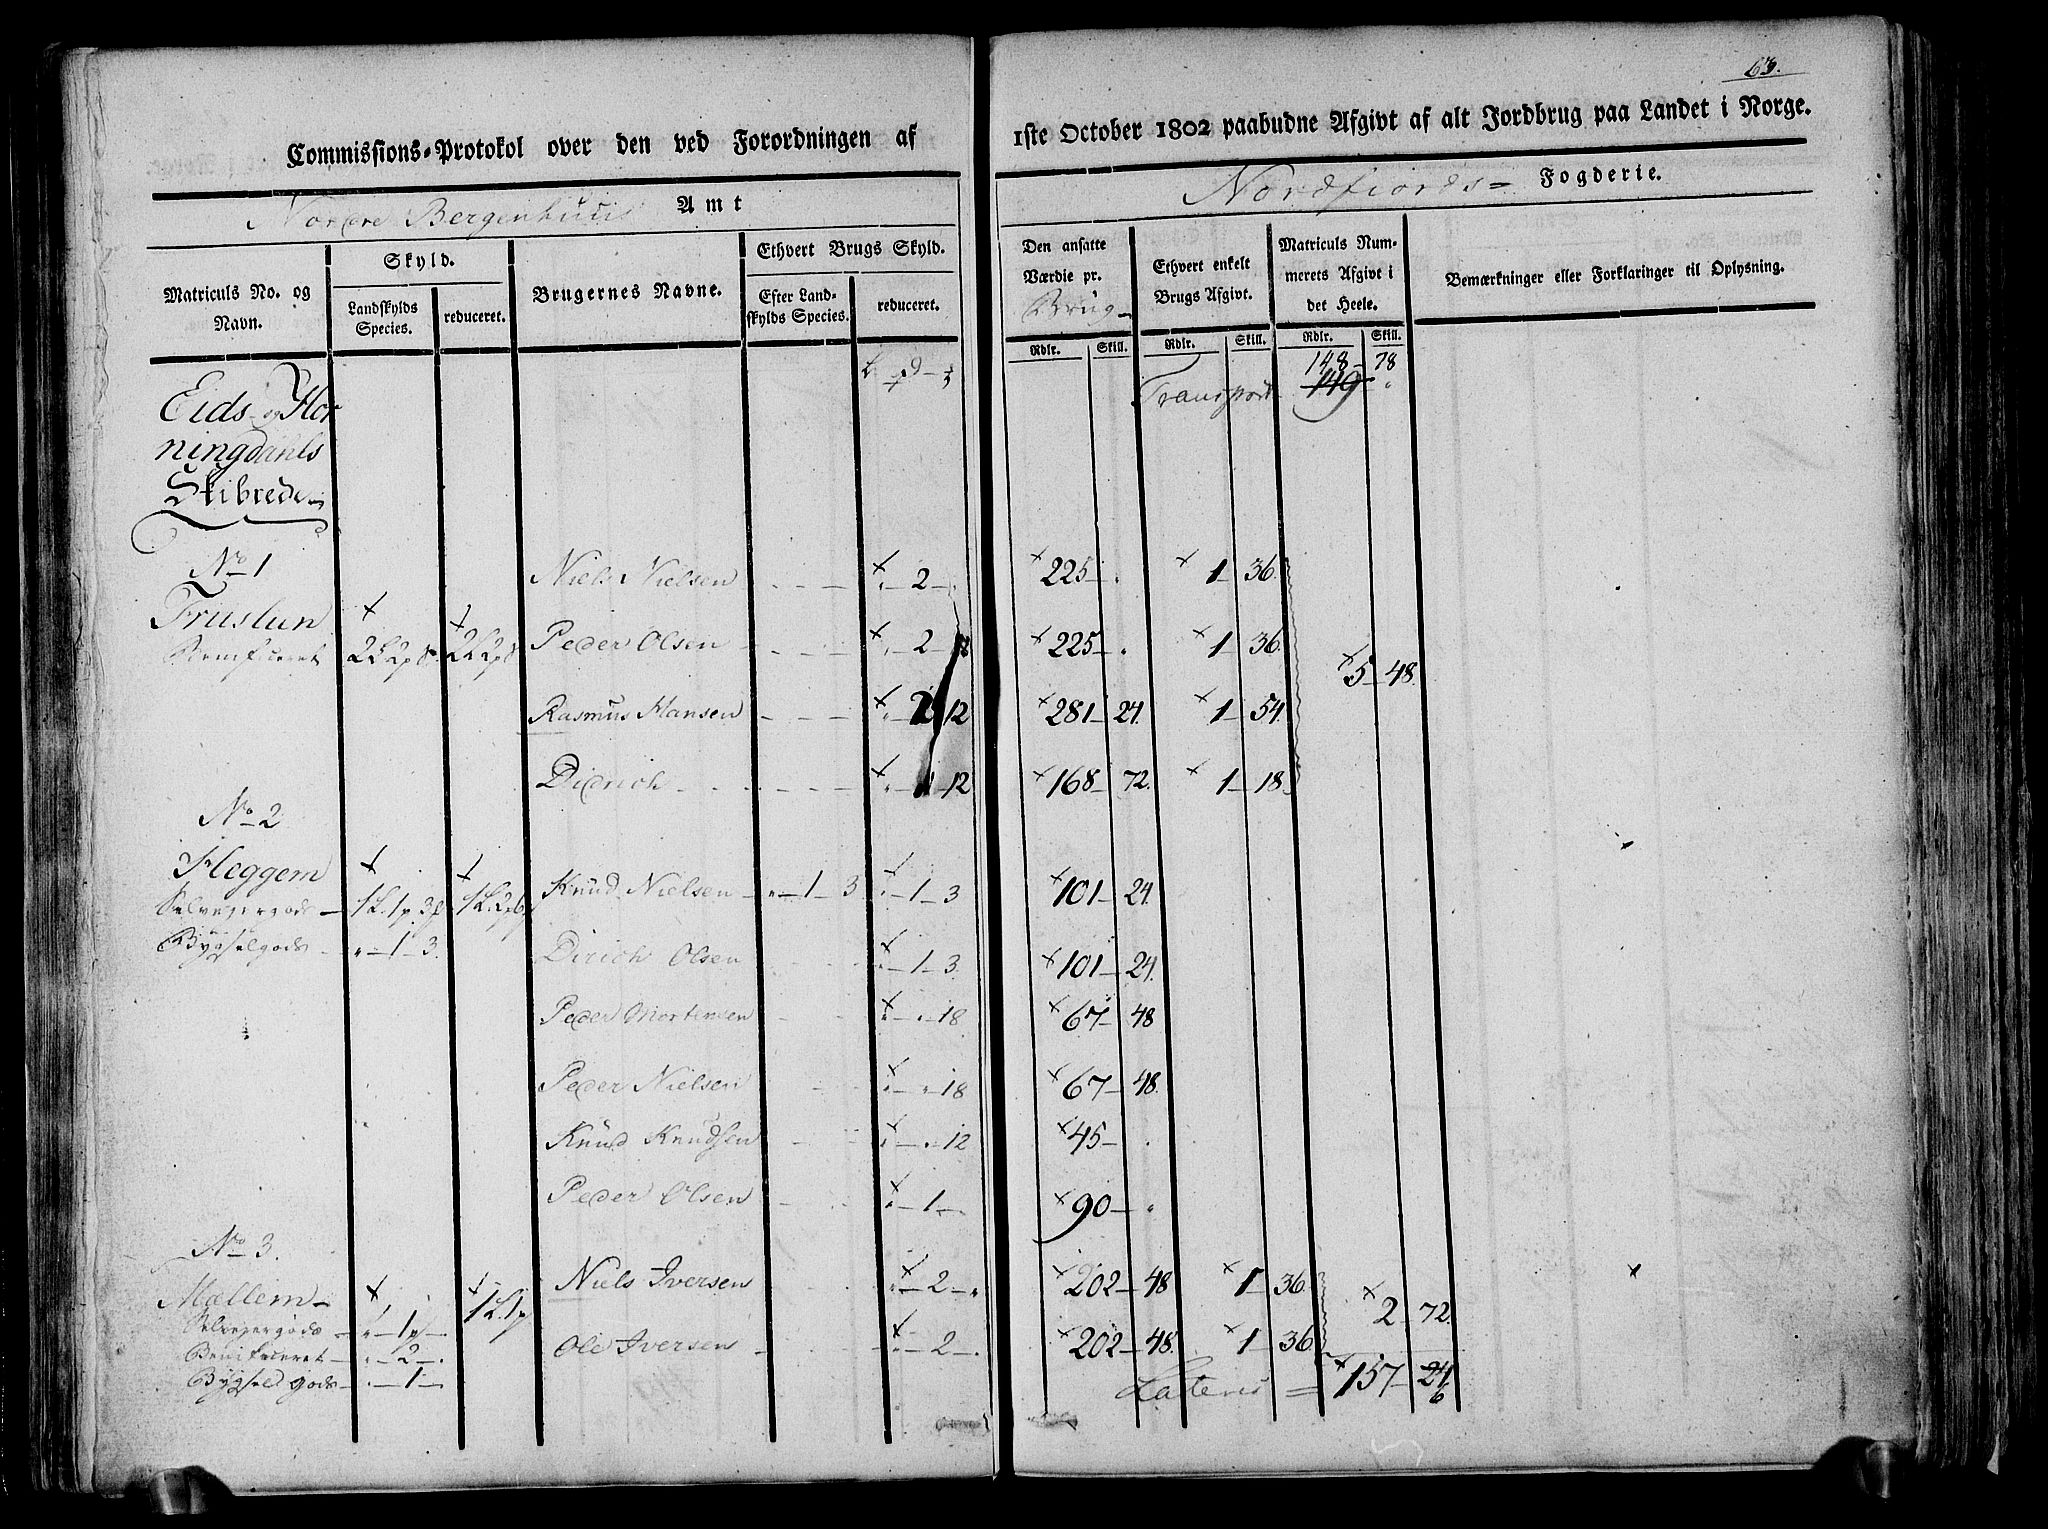 63.
Commissions-Protokol over den ved Forordningen af 1ste October 1802 paabudne Afgivt af alt Jordbrug paa Landet i Norge.
Nordre Bergenhuus Amt Nordfiords= Fogderie.
Matriculs No. og Navn.
Skyld.
Landskylds Species.
reduceret.
Brugernes Navne.
Ethvert Brugs Skyld.
Efter Landskylds Species.
reduceret.
Den ansatte Værdie pr. Brug
Rdlr. Skill.
Ethvert enkelt Brugs Afgivt.
Rdlr. Skill.
Matriculs Nummerets Afgivt i det Heele.
Rdlr. Skill.
Bemærkninger eller Forklaringer til Oplysning.
Transport 148 - 78
149
Eids og Hor
ningdahls
Skibrede
No 1
Niels Nielsen 2 225 1 36
Fruslun
Benificeret
Peder Olsen 2 225 1 36
5 48
Rasmus Hansen 2 12 281 24 1 54
Didrich 1 12 168 72 1 18
No 2
Heggem
Selvejergods 1 L. 1 p 3 Knud Nielsen 1 3 1 3 101 24
Bygselgods 1 3
Dirich Olsen 1 3 101 24
Peder Mortensen 18 67 48
Peder Nielsen 18 67 48
Knud Knudsen 12 45
Peder Olsen 1 90
No 3.
Mællem
Niels Iversen 2 202 48 1 36
Selvejergods 1 1 L. 1 p
2 72
Benificeret 2 Ole Iversen 2 202 48 1 36
Bygsel gods 1
Lateris = 157 24